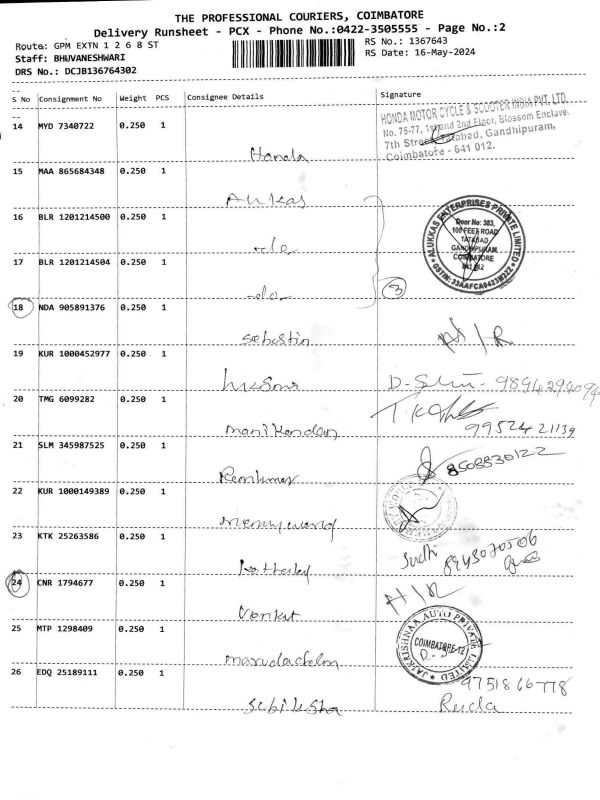 THE PROFESSIONAL COURIERS, COIMBATORE
Delivery Runsheet - PCX - Phone No.:0422-3505555 - Page No.:2
Route: GPM EXTN 1 2 6 8 ST
RS No.: 1367643
Staff: BHUVANESHWARI
RS Date: 16-May-2024
DRS No.: DCJB136764302
S No Consignment No Weight PCS Consignee Details Signature
14 MYD 7340722 0.250 1
HONDA MOTOR CYCLE & SCOOTER INDIA PVT. LTD.
No. 76-77, 1st and 2nd Floor, Blossom Enclave,
7th Street, Tatabad, Gandhipuram,
Coimbatore - 641 012.
Honda
15 MAA 865684348 0.250 1
16 BLR 1201214500 0.250 1
ALUKKAS ENTERPRISES PRIVATE LIMITED
Door No: 383,
100 FEET ROAD
TATABAD
GANDHIPURAM
COIMBATORE
641 012
GSTIN:33AAFCA0423N2Z2
-do-
17 BLR 1201214504 0.250 1
-do-
3
18 NDA 905891376 0.250 1
Sebastin
19 KUR 1000452977 0.250 1
20 TMG 6099282 0.250 1
Manikandan
99524 21139
21 SLM 345987525 0.250 1
8508830122
Ramkumar
22 KUR 1000149389 0.250 1
23 KTK 25263586 0.250 1
Sudhi
24 CNR 1794677 0.250 1
Venkat
25 MTP 1298409 0.250 1
JAIKRISHNAA AUTO PRIVATE LIMITED
COIMBATORE-12
Marudachalm
26 EDQ 25189111 0.250 1
9751866778
Subiksha